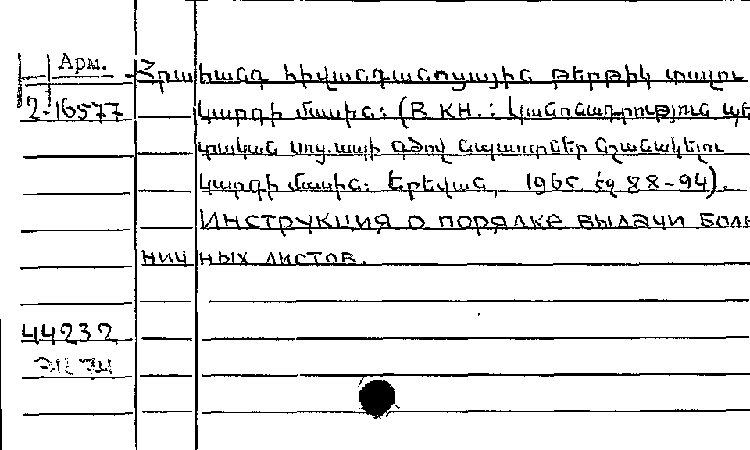 Арм.
Հրահանգ հիվանդանոցային թերթիկ տալու
2-16577 կարգի մասին: (В КН.: Կանոնադրություն պե
տական սոց. ապ գծով նպաստներ նշանակելու
կարգի մասին: Երևան, 1965 էջ 88-94).
Инструкция о порядке выдачи боль
нич ных листов.
44232